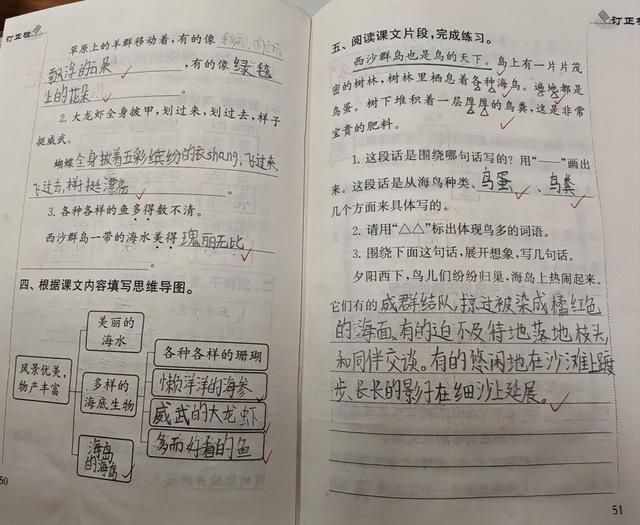 订正栏
草原上的羊群移动着，有的像
飘浮的云朵，有的像绿毯
上的花朵。
2. 大龙虾全身披甲，划过来，划过去，样子
挺威武。
蝴蝶全身披着五彩缤纷的衣shang，飞过来，
飞过去，样子挺漂亮。
3. 各种各样的鱼多得数不清。
西沙群岛一带的海水美得瑰丽无比
。
四、根据课文内容填写思维导图。
风景优美，
物产丰富
美丽的
海水
多样的
海底生物
海岛
的海鸟
各种各样的珊瑚
懒洋洋的海参
威武的大龙虾
多而好看的鱼
50
订正栏
五、阅读课文片段，完成练习。
西沙群岛也是鸟的天下。岛上有一片片茂
密的树林，树林里栖息着各种海鸟。遍地都是
鸟蛋。树下堆积着一层厚厚的鸟粪，这是非常
宝贵的肥料。
1. 这段话是围绕哪句话写的？用“——”画出
来。这段话是从海鸟种类、鸟蛋、鸟粪
几个方面来具体写的。
2. 请用“△△”标出体现鸟多的词语。
3. 围绕下面这句话，展开想象，写几句话。
夕阳西下，鸟儿们纷纷归巢，海岛上热闹起来。
它们有的成群结队，掠过被染成橘红色
的海面。有的迫不及待地落地枝头，
和同伴交谈。有的悠闲地在沙滩上踱
步、长长的影子在细沙上延展。
51